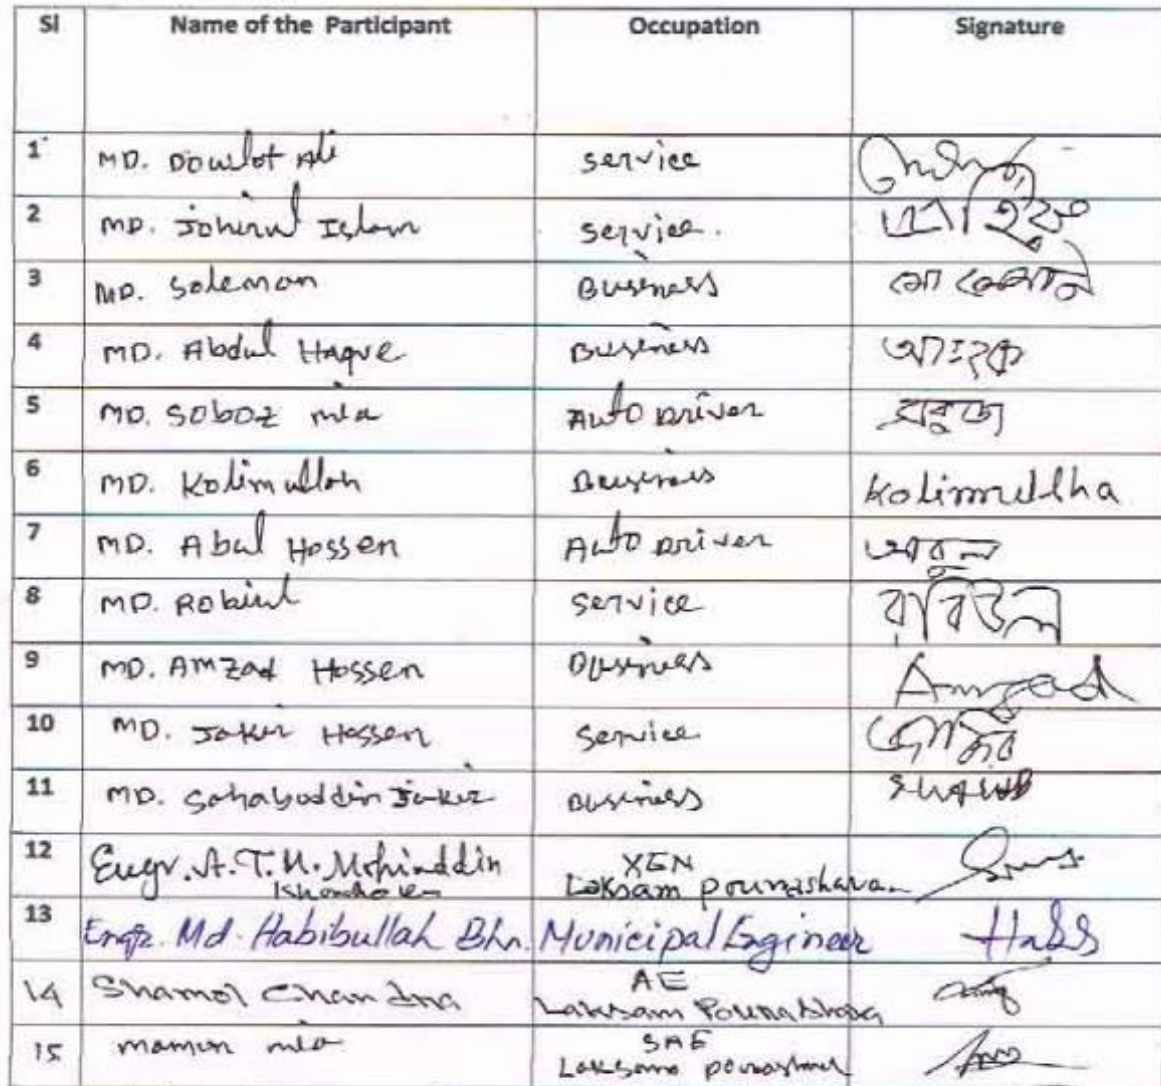 Sl Name of the Participant Occupation Signature
1 MD. Dowlot Ali service
2 MD. Johirul Islam service.
3 MD. Soleman Business
4 MD. Abdul Haque Business আঃহক
5 MD. Soboz mia Auto Driver সবুজ
6 MD. Kolimullah Business Kolimullha
7 MD. Abul Hossen Auto Driver আবুল
8 MD. Robiul service রবিউল
9 MD. Amzad Hossen Business Amzad
10 MD. Jakir Hossen service
11 MD. Sahabuddin Jakir Business
12 Engr. A.T.M. Mohiuddin XEN
Laksam pourashava.
13 Engr. Md. Habibullah Bhn. Municipal Egineer
14 Shamol Chandra AE
Laksam Pourashava
15 mamun mia SAE
Laksam pourashava